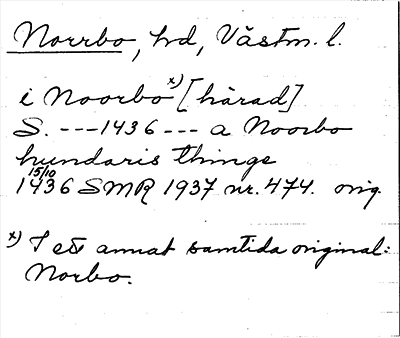 Norrbo, hd, Västm. l.
i Noorbo x) [härad]
S. ---1436--- a Noorbo
hundaris things
15/10
1436 SMR 1937 nr. 474. orig.
x) I ett annat samtida original:
Norbo.